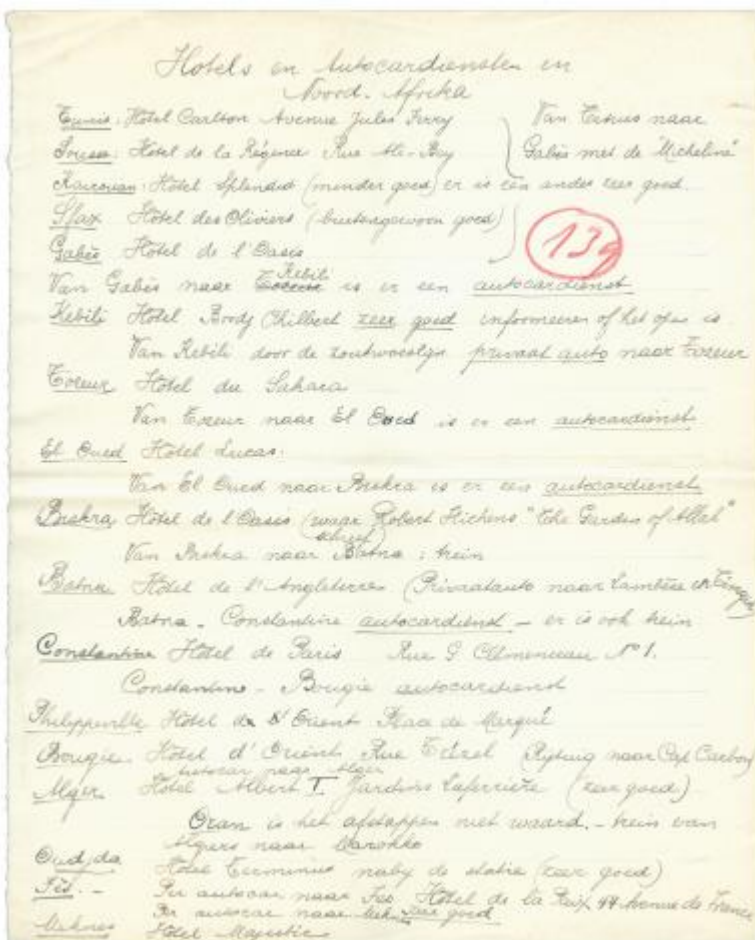 Hotels en Autocardiensten in
Noord-Afrika
Tunis: Hôtel Carlton Avenue Jules Ferry
Van Tunis naar
Sousse: Hôtel de la Régence Rue Ali-Bey
Gabès met de "Micheline"
Kairouan: Hôtel Splendid (minder goed) er is een ander zeer goed.
Sfax Hôtel des Oliviers (buitengewoon goed)
139
Gabès Hôtel de l'Oasis
Van Gabès naar Kebili is er een autocardienst
Kebili Hôtel Bordj Philbert zeer goed informeeren of het open is
Van Kebili door de zoutwoestijn privaat auto naar Tozeur
Tozeur Hôtel du Sahara
Van Tozeur naar El Oued is er een autocardienst
El Oued Hôtel Lucas.
Van El Oued naar Biskra is er een autocardienst
Biskra Hôtel de l'Oasis (waar Robert Hichens "The Garden of Allah"
schreef)
Van Biskra naar Batna: trein
Batna Hôtel de l'Angleterre (Privaatauto naar Lambèse en Timgad)
Batna - Constantine autocardienst - er is ook trein
Constantine Hôtel de Paris Rue G Clemenceau No 1.
Constantine - Bougie autocardienst
Philippeville Hôtel d'Orient Place de Marqué
Bougie Hôtel d'Orient Rue Trézel (Rijtuig naar Cap Carbon)
Autocar naar Alger
Alger Hôtel Albert I. Jardins Laferrière (zeer goed)
Oran is het afstappen niet waard. - trein van
Algers naar Marokko
Oudjda Hôtel Terminus nabij de statie (zeer goed)
Fès. - Per autocar naar Fes Hôtel de la Paix 44 Avenue de France
Per autocar naar Mek. zeer goed
Meknes Hôtel Majestic